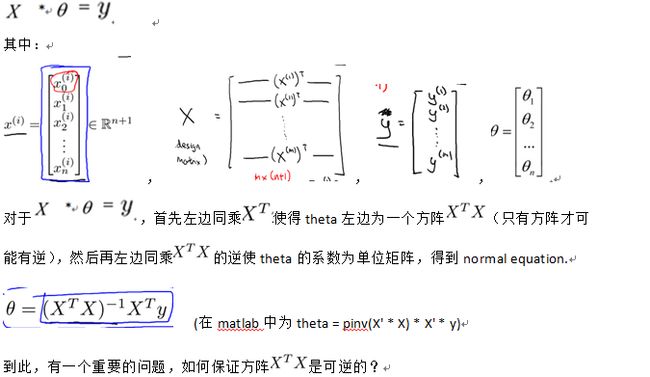 X * θ = y
其中:
x^{(i)} = [x_0^{(i)} x_1^{(i)} x_2^{(i)} ⋮ x_n^{(i)}] ∈ ℝ^{n+1} , X = [—(x^{(1)})^T— —(x^{(2)})^T— ⋮ —(x^{(m)})^T—] design matrix m×(n+1) , y = [y^{(1)} y^{(2)} ⋮ y^{(m)}] , θ = [θ_1 θ_2 ... θ_n]
对于 X * θ = y ,首先左边同乘X^T使得 theta 左边为一个方阵X^T X(只有方阵才可
能有逆),然后再左边同乘X^T X 的逆使 theta 的系数为单位矩阵,得到 normal equation.
θ = (X^T X)^{-1} X^T y (在 matlab 中为 theta = pinv(X' * X) * X' * y)
到此,有一个重要的问题,如何保证方阵X^T X是可逆的?